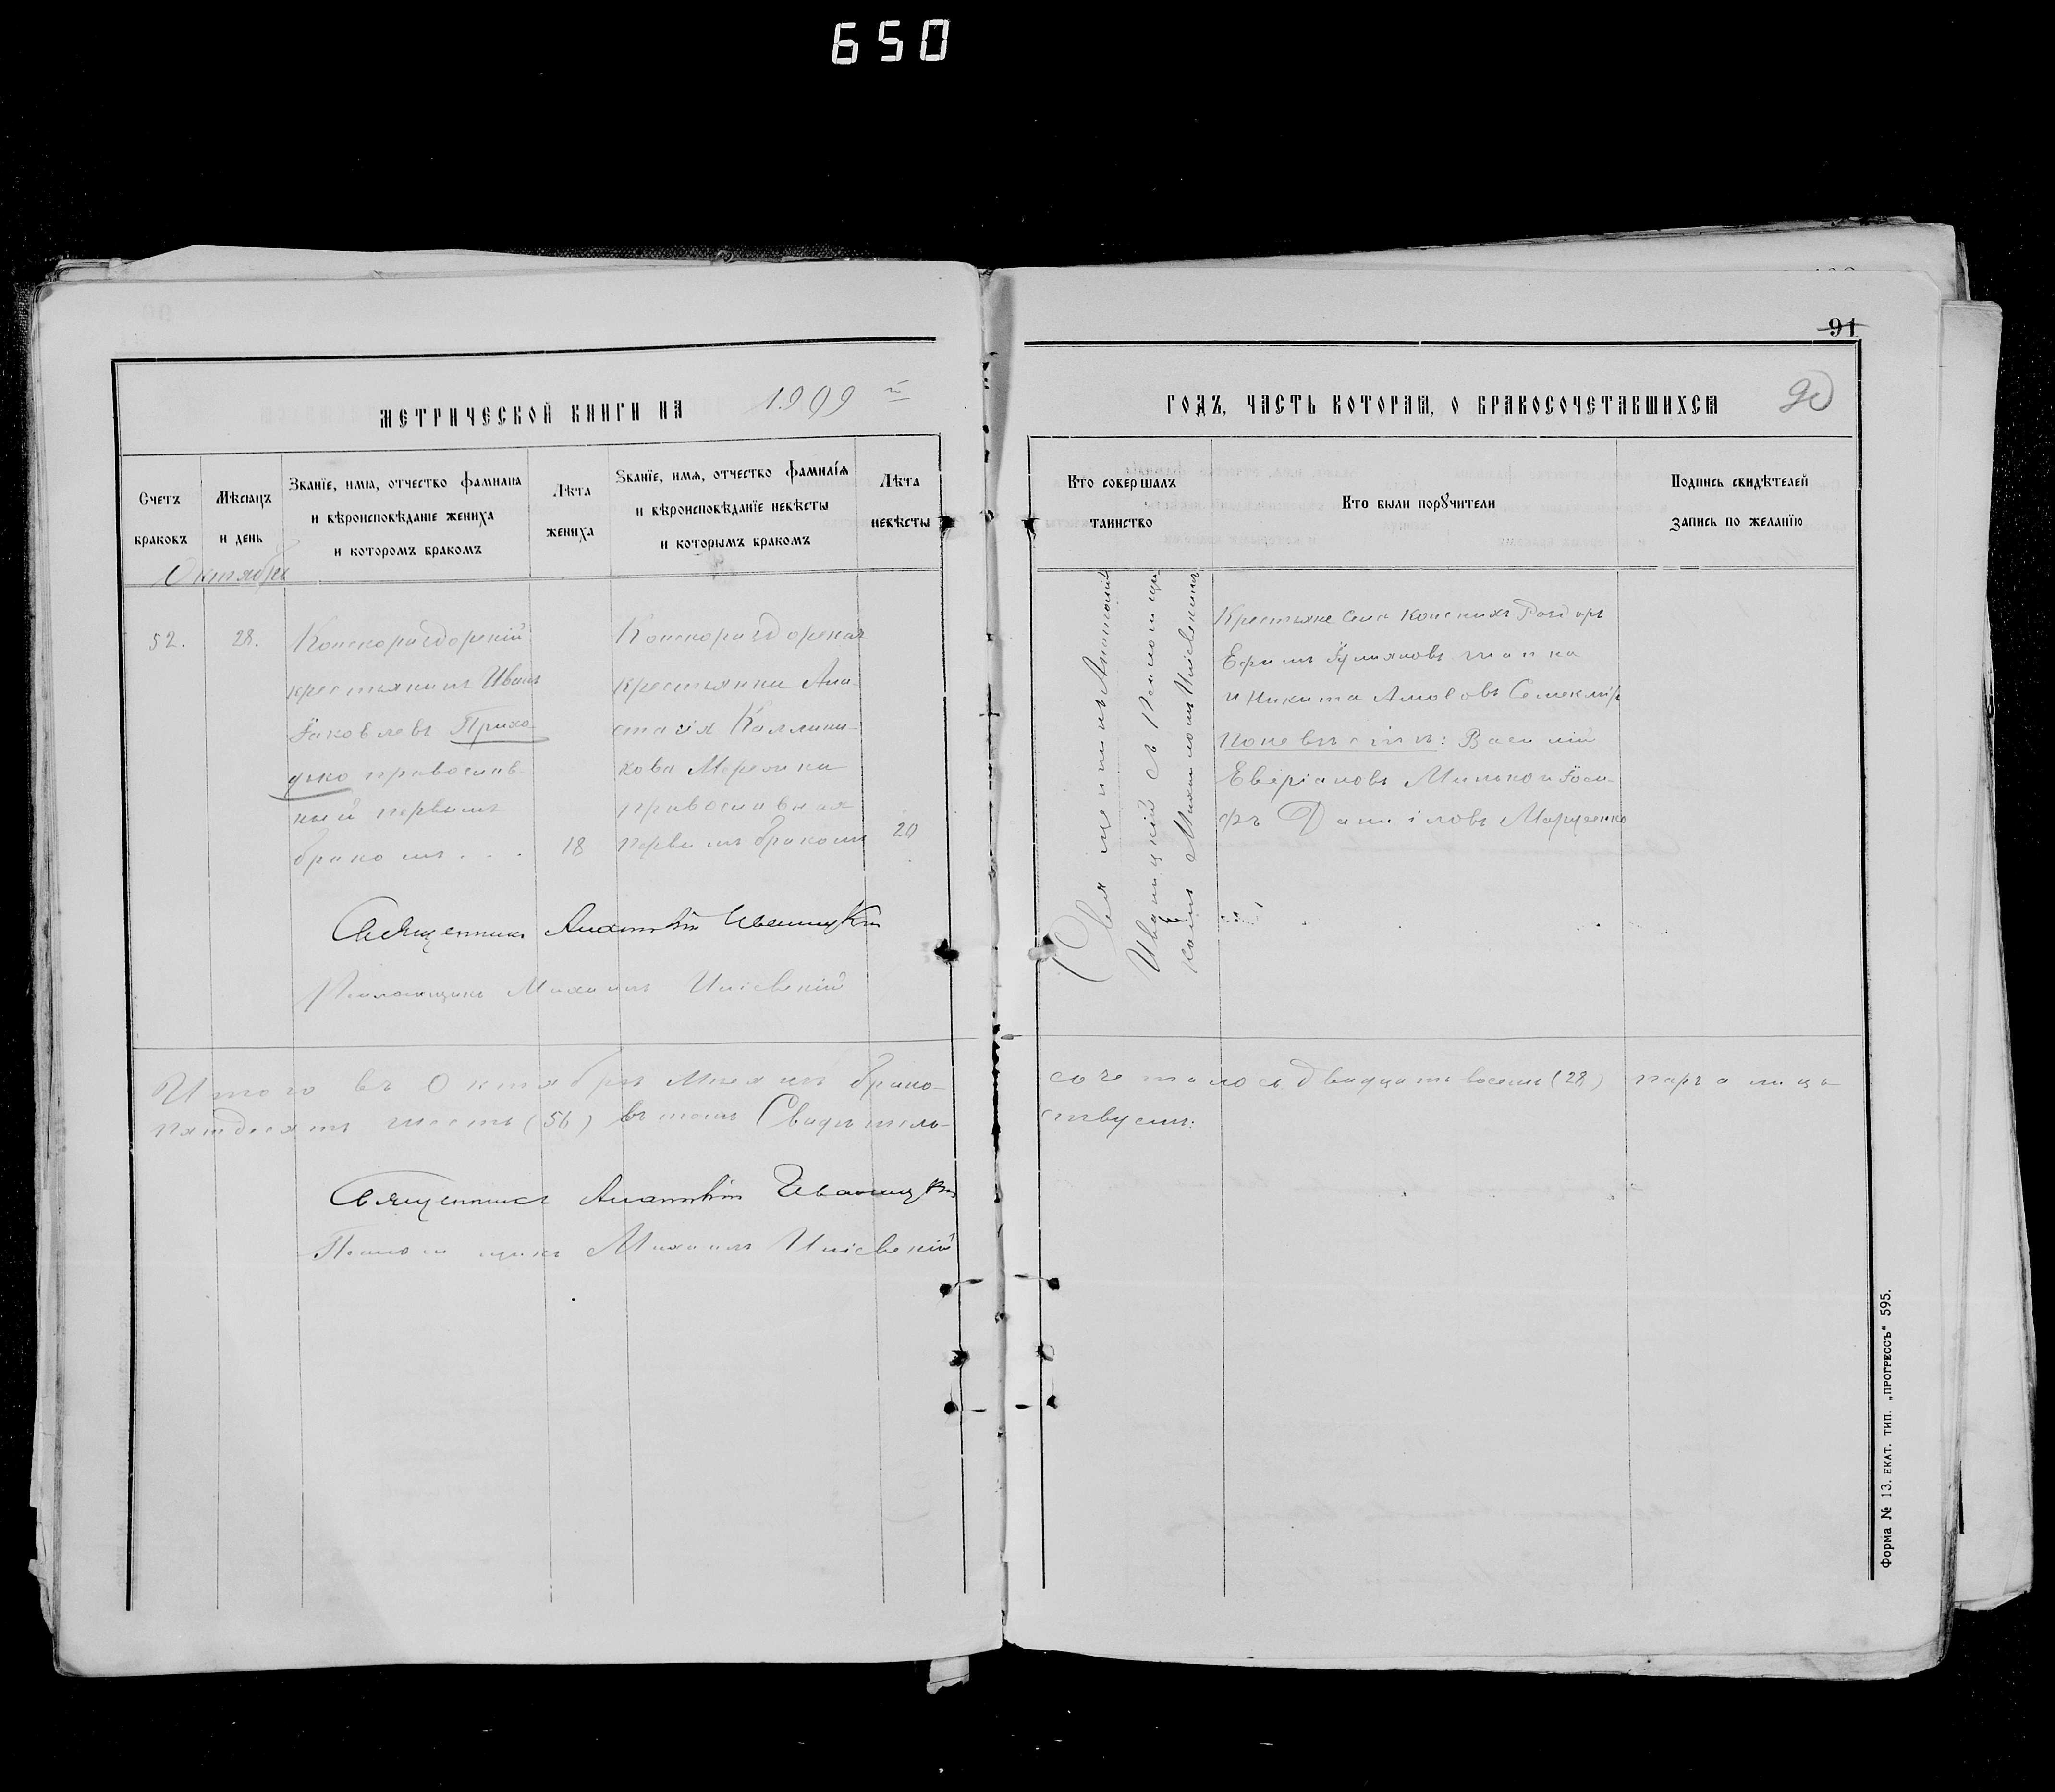 650
91
90
МЕТРИЧЕСКОЙ КНИГИ НА 1909 й
ГОДЪ, ЧАСТЬ КОТОРАЯ, О БРАКОСОЧЕТАВШИХСЯ
Счетъ браковъ
Мѣсяцъ и день
Званіе, имя, отчество фамилія
и вѣроисповѣданіе жениха
и которомъ бракомъ
Лѣта жениха
Званїе, имя, отчество фамилія
и вѣроисповѣданїе невѣсты
и которымъ бракомъ
Лѣта невѣсты
Кто совершалъ таинство
Кто были поручители
Подпись свидѣтелей
запись по желанїю
Октябрь
52.
28.
Конскораздорскій
крестьянинъ Иванъ
Іаковлевъ Прихо-
дько православ-
ный первымъ
бракомъ . . .
18
Конскораздорская
крестьянка Ана-
стасія Каллини-
кова
православная
первымъ бракомъ
20
Священникъ Анатолій
Иваницкій съ Псаломщи-
комъ Михаиломъ
Крестьяне села Конскихъ Раздоръ
Ефимъ
и Никита
по невѣстѣ: Василій
Аверіановъ Минько и Іоси-
фъ Даніиловъ Марченко
Священникъ Анатолій Иваницкій
Псаломщикъ Михаилъ
Итого въ Октябрѣ мѣсяцѣ брако-
сочеталось двадцать восемь (28) паръ а лицъ
пятдесятъ шесть (56) въ томъ Свидѣтель-
ствуемъ:
Священникъ Анатолій Иваницкій
Псаломщикъ Михаилъ
Форма № 13. ЕКАТ. ТИП. „ПРОГРЕССЪ" 595.